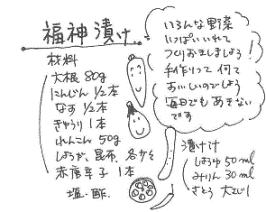 福神漬け
材料
大根 80g
にんじん 1/2本
なす 1/2本
きゅうり 1本
れんこん 50g
しょうが、昆布、各少々
赤唐辛子 1本
塩・酢
いろんな野菜
いっぱいいれて
つくりおきしましょう!
手作りって何て
おいしいのでしょう
毎日でもあきない
です
漬け汁
しょうゆ 50ml
みりん 30ml
さとう 大さじ1